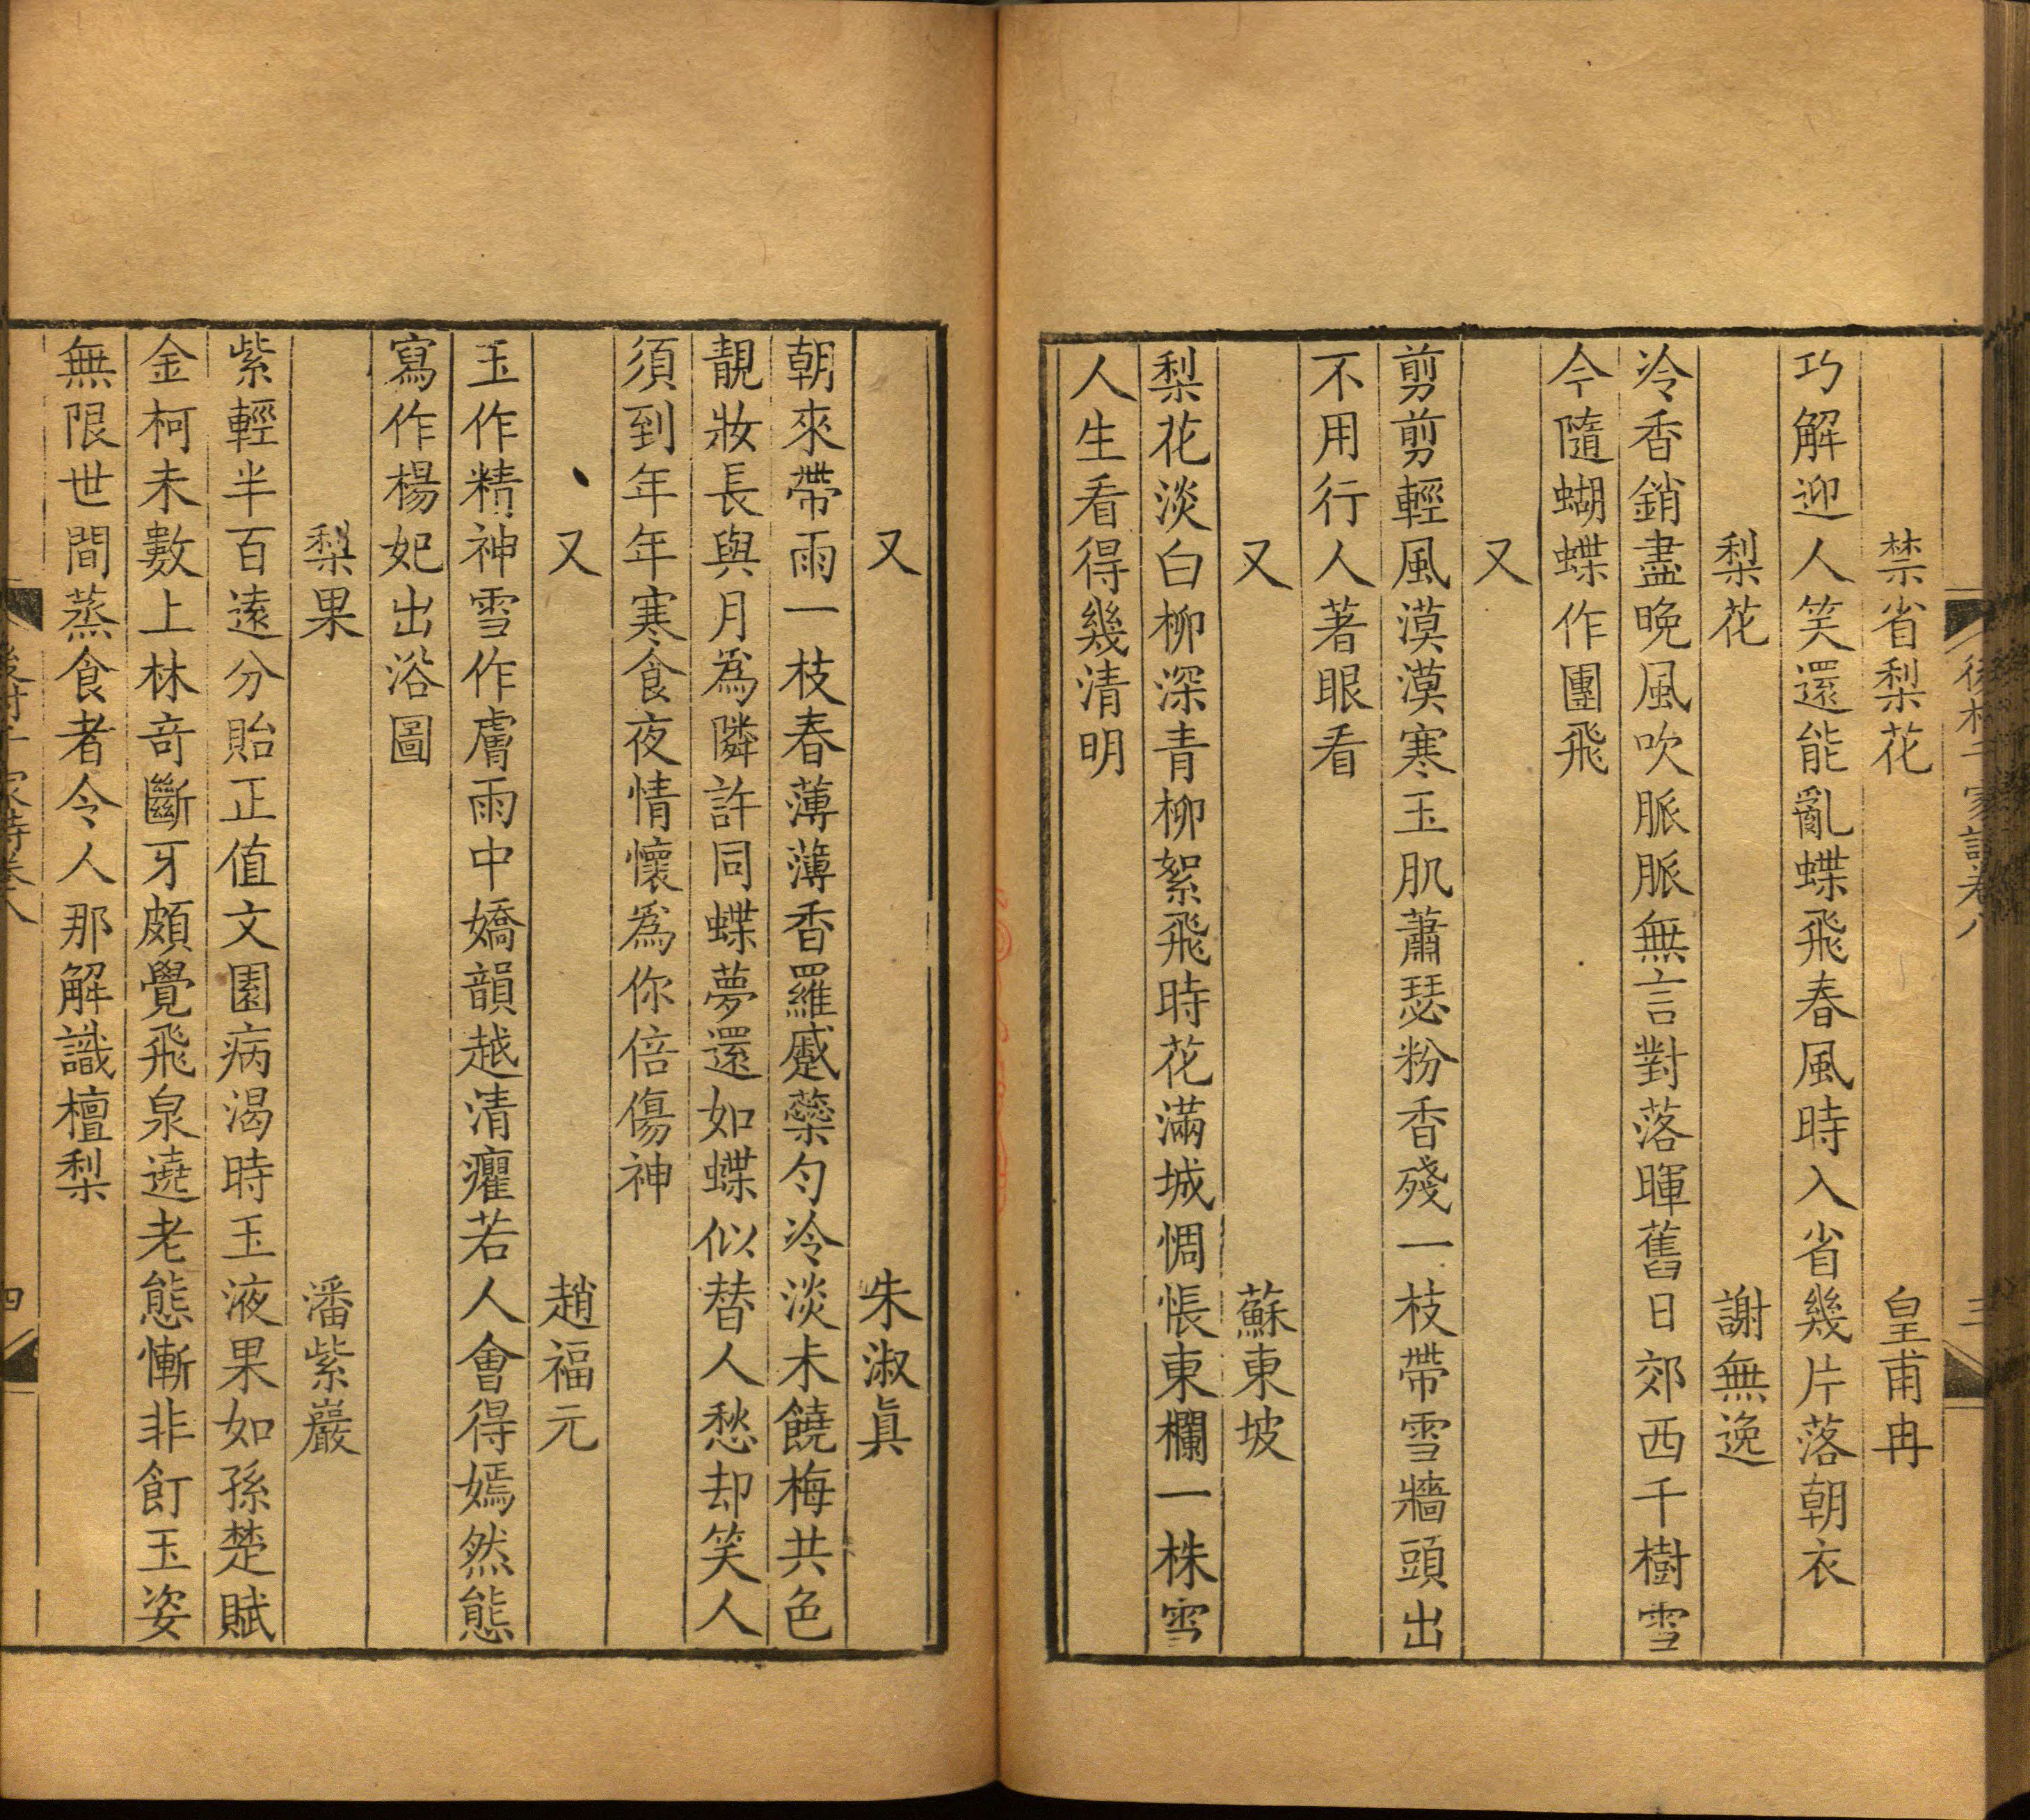 禁省梨花 皇甫冉
巧解迎人笑還能亂蝶飛春風時入省幾片落朝衣
梨花 謝無逸
冷香銷盡晚風吹脈脈無言對落暉舊日郊西千樹雪
今隨蝴蝶作團飛
又
剪剪輕風漠漠寒玉肌蕭瑟粉香殘一枝帶雪牆頭出
不用行人著眼看
又 蘇東坡
梨花淡白柳深青柳絮飛時花滿城惆悵東欄一株雪
人生看得幾清明
又 朱淑眞
朝來帶雨一枝春薄薄香羅蹙蘂勻冷淡未饒梅共色
靚妝長與月爲隣許同蝶夢還如蝶似替人愁却笑人
須到年年寒食夜情懷爲你倍傷神
又 趙福元
玉作精神雪作膚雨中嬌韻越清癯若人會得嫣然態
寫作楊妃出浴圖
梨果 潘紫巖
紫輕半百遠分貽正值文園病渴時玉液果如孫楚賦
金柯未數上林奇斷牙頗覺飛泉遶老態慚非飣玉姿
無限世間蒸食者令人那解識檀梨
四